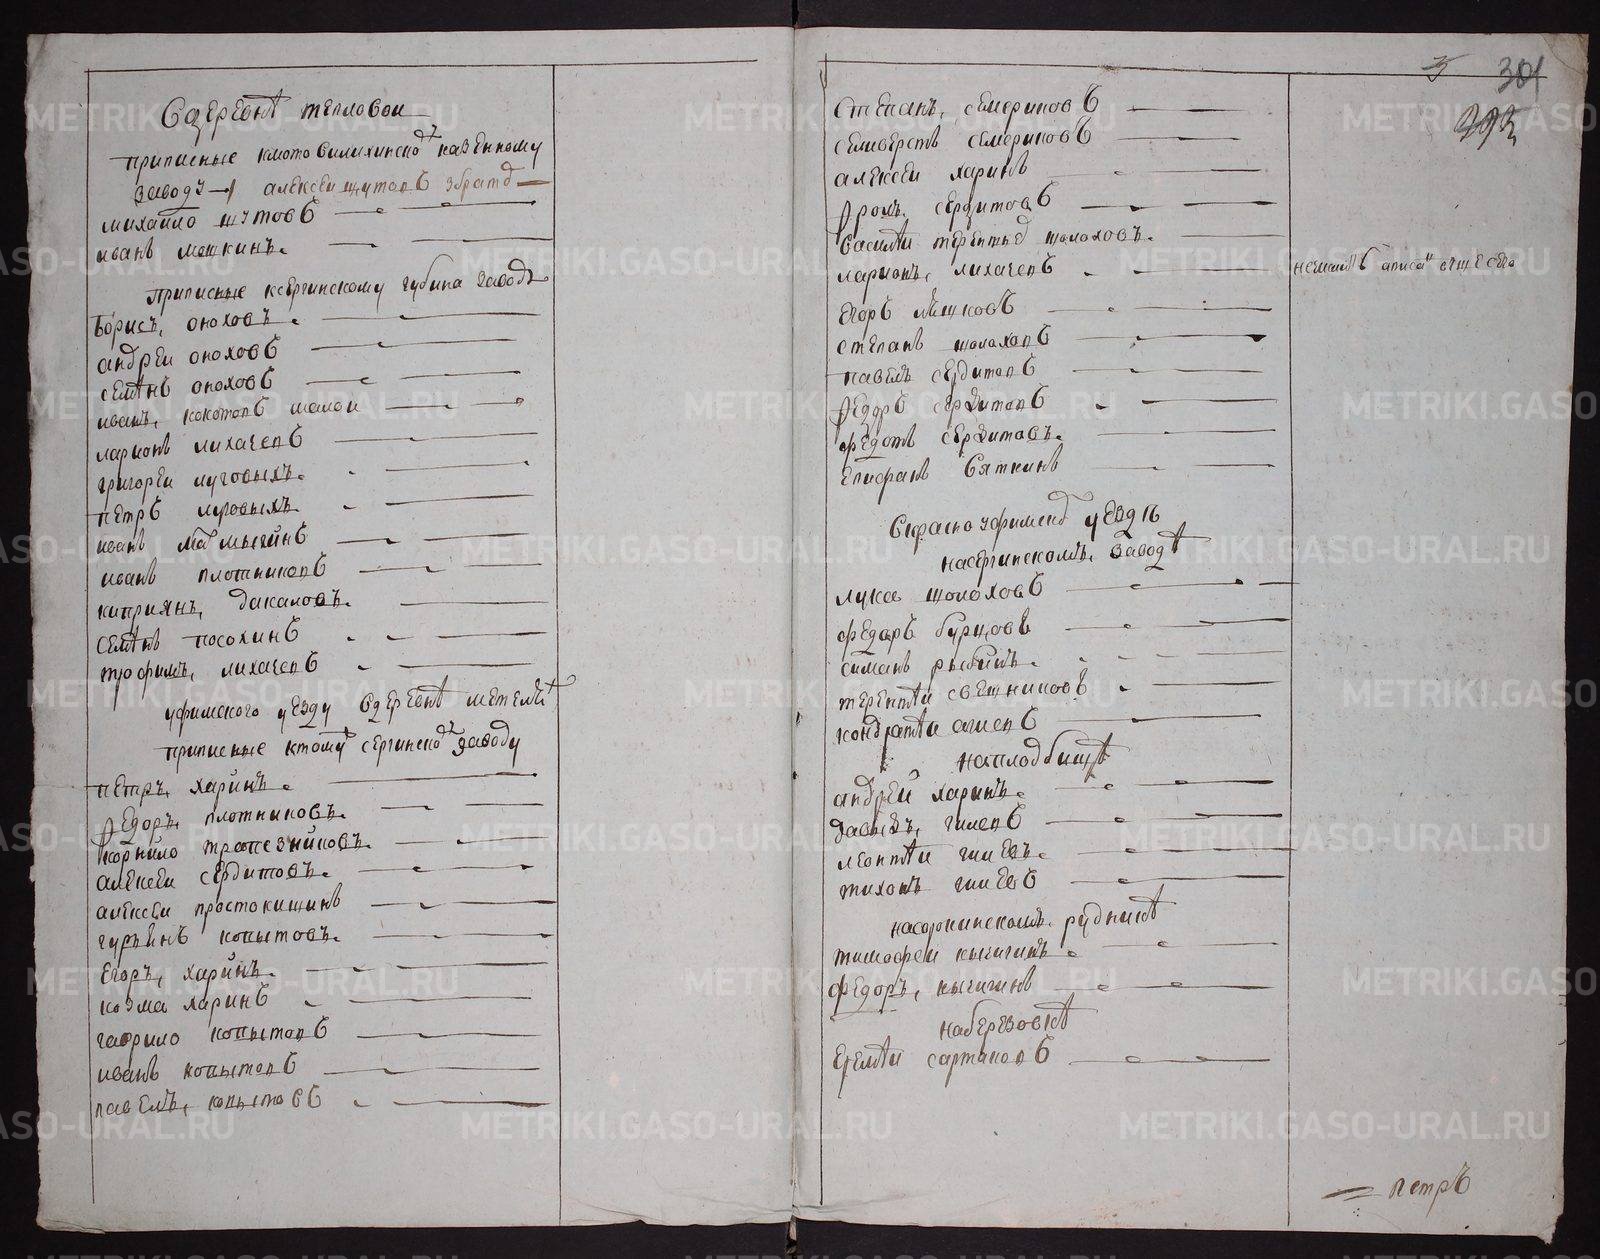 В деревнѣ тепловои
приписные к мотовилихинско казенному
заводу алексеи шутовъ з брат
михаило шутовъ
иванъ мошкинъ
приписные к сергинскому губина заводу
борисъ оноховъ
андреи оноховъ
семѣнъ оноховъ
иванъ кокотовъ
ларионъ лихачевъ
григореи луговыхъ
петръ луговыхъ
иванъ мамыкинъ
иванъ плотниковъ
киприянъ дакаловъ
семѣнъ посохинъ
трофимъ лихачевъ
уфимского уезду в деревнѣ метелѣ
приписные к тому сергинско заводу
петръ харинъ
федоръ плотниковъ
корнило трапезниковъ
алексеи сердитовъ
алексеи простокишинъ
гурьинъ копытовъ
егоръ харинъ
козма харинъ
гаврило копытовъ
иванъ копытовъ
павелъ копытовъ
301
степанъ семериковъ
селиверстъ семериковъ
алексеи харинъ
фролъ сердитовъ
василѣи терентьев шолоховъ
ларионъ лихачевъ
егоръ мѣшковъ
степанъ шолоховъ
павелъ сердитовъ
федоръ сердитовъ
федотъ сердитовъ
епифанъ вяткинъ
В красноуфимско уезде
на сергинскомъ заводѣ
лука шолоховъ
федоръ бурцовъ
симонъ рыбинъ
терентѣи свешниковъ
кондратѣи
на плодбищѣ
андреи харинъ
давыдъ гилевъ
леонтѣи гилевъ
тихонъ гилевъ
на соркинскомъ рудникѣ
тимофеи кычигинъ
федоръ кычигинъ
на березовкѣ
еремѣи сартаковъ
петръ